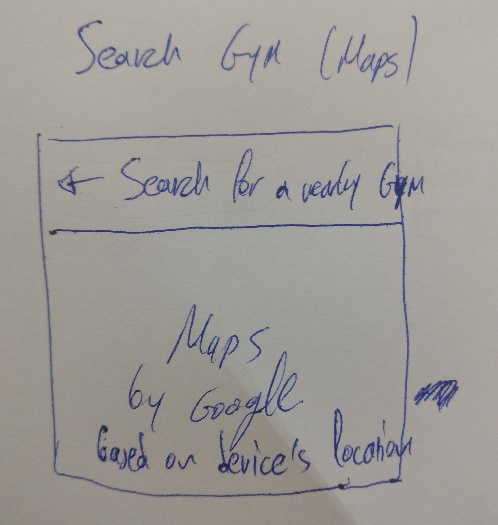 Search Gym (Maps)
← Search for a nearby Gym
Maps
by Google
based on device's location